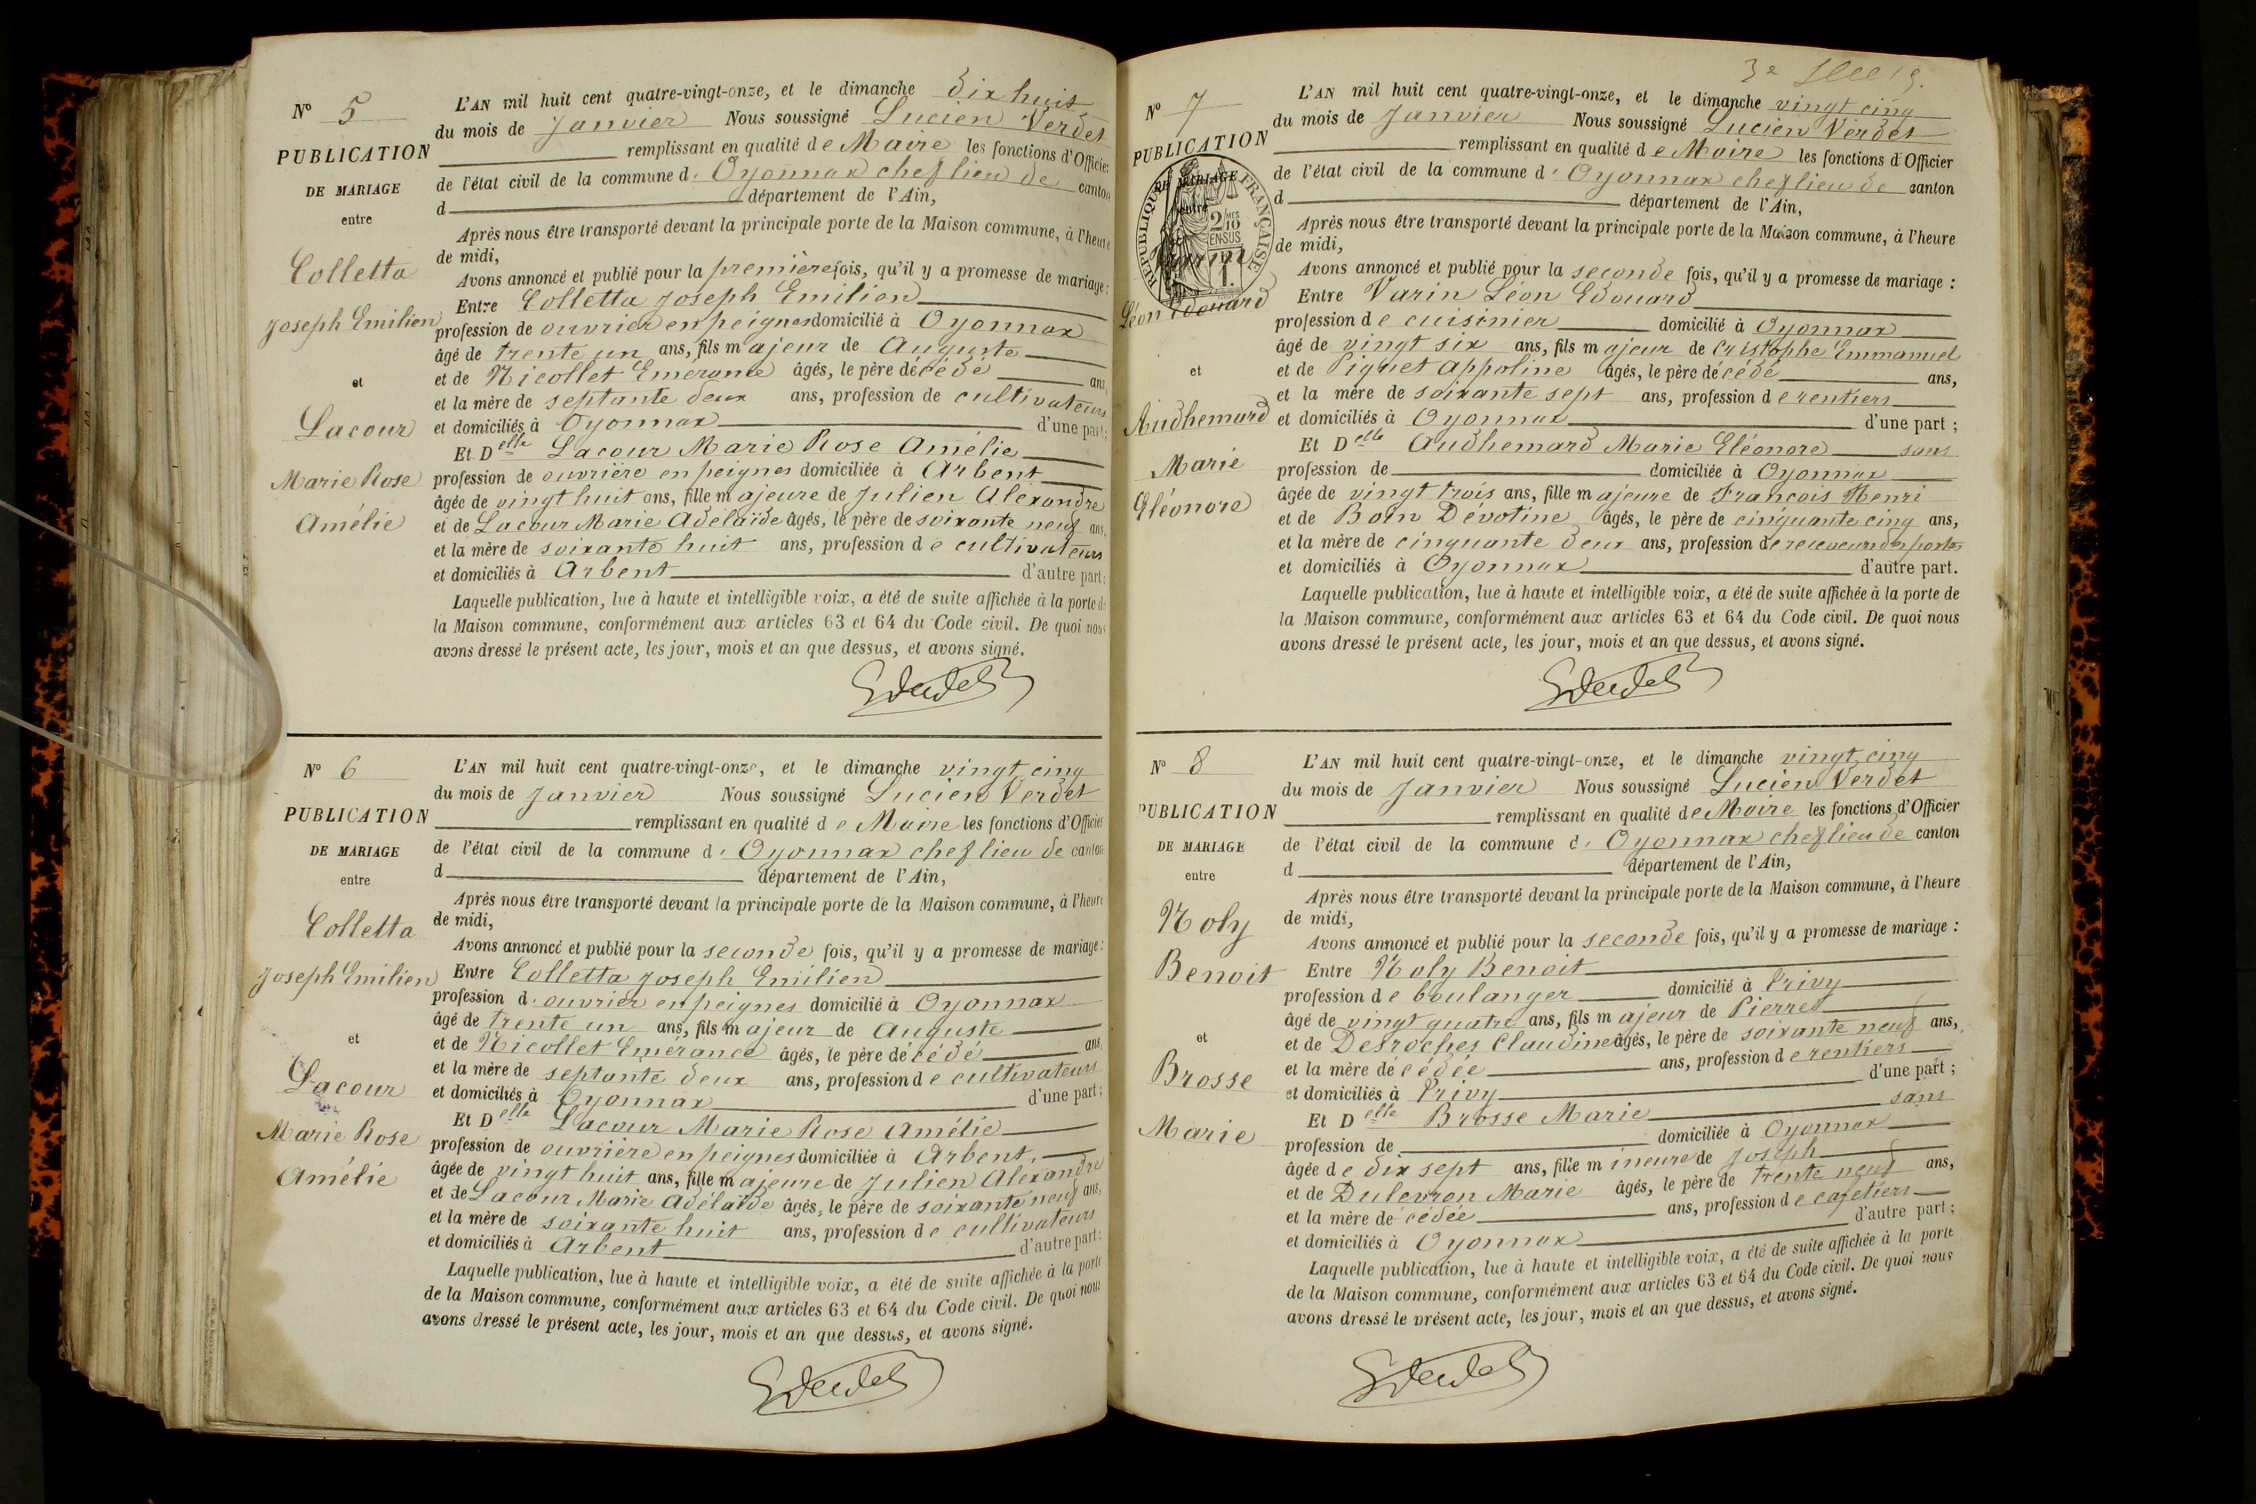 N° 5
PUBLICATION
DE MARIAGE
entre
Colletta
Joseph Emilien
et
Lacour
Marie Rose
Amélie
L'AN mil huit cent quatre-vingt-onze, et le dimanche dix huit
du mois de Janvier Nous soussigné Lucien Verdet
remplissant en qualité de Maire les fonctions d'Officier
de l'état civil de la commune d' Oyonnax chef lieu de canton
d département de l'Ain,
Après nous être transporté devant la principale porte de la Maison commune, à l'heure
de midi,
Avons annoncé et publié pour la première fois, qu'il y a promesse de mariage :
Entre Colletta Joseph Emilien
profession de ouvrier en peignes domicilié à Oyonnax
âgé de trente un ans, fils majeur de Auguste
et de Nicollet Emérance âgés, le père décédé ans,
et la mère de septante deux ans, profession de cultivateurs
et domiciliés à Oyonnax d'une part;
Et Delle Lacour Marie Rose Amélie
profession de ouvrière en peignes domiciliée à Arbent
âgée de vingt huit ans, fille majeure de Julien Alexandre
et de Lacour Marie Adélaïde âgés, le père de soixante neuf ans,
et la mère de soixante huit ans, profession de cultivateurs
et domiciliés à Arbent d'autre part;
Laquelle publication, lue à haute et intelligible voix, a été de suite affichée à la porte de
la Maison commune, conformément aux articles 63 et 64 du Code civil. De quoi nous
avons dressé le présent acte, les jour, mois et an que dessus, et avons signé.
N° 6
PUBLICATION
DE MARIAGE
entre
Colletta
Joseph Emilien
et
Lacour
Marie Rose
Amélie
L'AN mil huit cent quatre-vingt-onze, et le dimanche vingt cinq
du mois de Janvier Nous soussigné Lucien Verdet
remplissant en qualité de Maire les fonctions d'Officier
de l'état civil de la commune d' Oyonnax chef lieu de canton
d département de l'Ain,
Après nous être transporté devant la principale porte de la Maison commune, à l'heure
de midi,
Avons annoncé et publié pour la seconde fois, qu'il y a promesse de mariage :
Entre Colletta Joseph Emilien
profession d' ouvrier en peignes domicilié à Oyonnax
âgé de trente un ans, fils majeur de Auguste
et de Nicollet Emérance âgés, le père décédé ans,
et la mère de septante deux ans, profession de cultivateurs
et domiciliés à Oyonnax d'une part;
Et Delle Lacour Marie Rose Amélie
profession de ouvrière en peignes domiciliée à Arbent.
âgée de vingt huit ans, fille majeure de Julien Alexandre
et de Lacour Marie Adélaïde âgés, le père de soixante neuf ans,
et la mère de soixante huit ans, profession de cultivateurs
et domiciliés à Arbent d'autre part;
Laquelle publication, lue à haute et intelligible voix, a été de suite affichée à la porte
de la Maison commune, conformément aux articles 63 et 64 du Code civil. De quoi nous
avons dressé le présent acte, les jour, mois et an que dessus, et avons signé.
3e
N° 7
PUBLICATION
DE MARIAGE
entre
RÉPUBLIQUE FRANÇAISE
2/10 EN SUS
Varin
Léon Edouard
et
Audhemard
Marie
Eléonore
L'AN mil huit cent quatre-vingt-onze, et le dimanche vingt cinq
du mois de Janvier Nous soussigné Lucien Verdet
remplissant en qualité de Maire les fonctions d'Officier
de l'état civil de la commune d' Oyonnax chef lieu de canton
d département de l'Ain,
Après nous être transporté devant la principale porte de la Maison commune, à l'heure
de midi,
Avons annoncé et publié pour la seconde fois, qu'il y a promesse de mariage :
Entre Varin Léon Edouard
profession de cuisinier domicilié à Oyonnax
âgé de vingt six ans, fils majeur de Cristophe Emmanuel
et de Piguet Appoline âgés, le père décédé ans,
et la mère de soixante sept ans, profession de rentiers
et domiciliés à Oyonnax d'une part ;
Et Delle Audhemard Marie Eléonore sans
profession de domiciliée à Oyonnax
âgée de vingt trois ans, fille majeure de Francois Henri
et de Boin Dévotine âgés, le père de cinquante cinq ans,
et la mère de cinquante deux ans, profession de receveur des postes
et domiciliés à Oyonnax d'autre part.
Laquelle publication, lue à haute et intelligible voix, a été de suite affichée à la porte de
la Maison commune, conformément aux articles 63 et 64 du Code civil. De quoi nous
avons dressé le présent acte, les jour, mois et an que dessus, et avons signé.
N° 8
PUBLICATION
DE MARIAGE
entre
Noly
Benoit
et
Brosse
Marie
L'AN mil huit cent quatre-vingt-onze, et le dimanche vingt cinq
du mois de Janvier Nous soussigné Lucien Verdet
remplissant en qualité de Maire les fonctions d'Officier
de l'état civil de la commune d' Oyonnax chef lieu de canton
d département de l'Ain,
Après nous être transporté devant la principale porte de la Maison commune, à l'heure
de midi,
Avons annoncé et publié pour la seconde fois, qu'il y a promesse de mariage :
Entre Noly Benoit
profession de boulanger domicilié à Privy
âgé de vingt quatre ans, fils majeur de Pierre
et de Desroches Claudine âgés, le père de soixante neuf ans,
et la mère décédée ans, profession de rentiers
et domiciliés à Privy d'une part ;
Et Delle Brosse Marie sans
profession de domiciliée à Oyonnax
âgée de dix sept ans, fille mineure de Joseph
et de Dulevron Marie âgés, le père de trente neuf ans,
et la mère décédée ans, profession de cafetiers
et domiciliés à Oyonnax d'autre part;
Laquelle publication, lue à haute et intelligible voix, a été de suite affichée à la porte
de la Maison commune, conformément aux articles 63 et 64 du Code civil. De quoi nous
avons dressé le présent acte, les jour, mois et an que dessus, et avons signé.